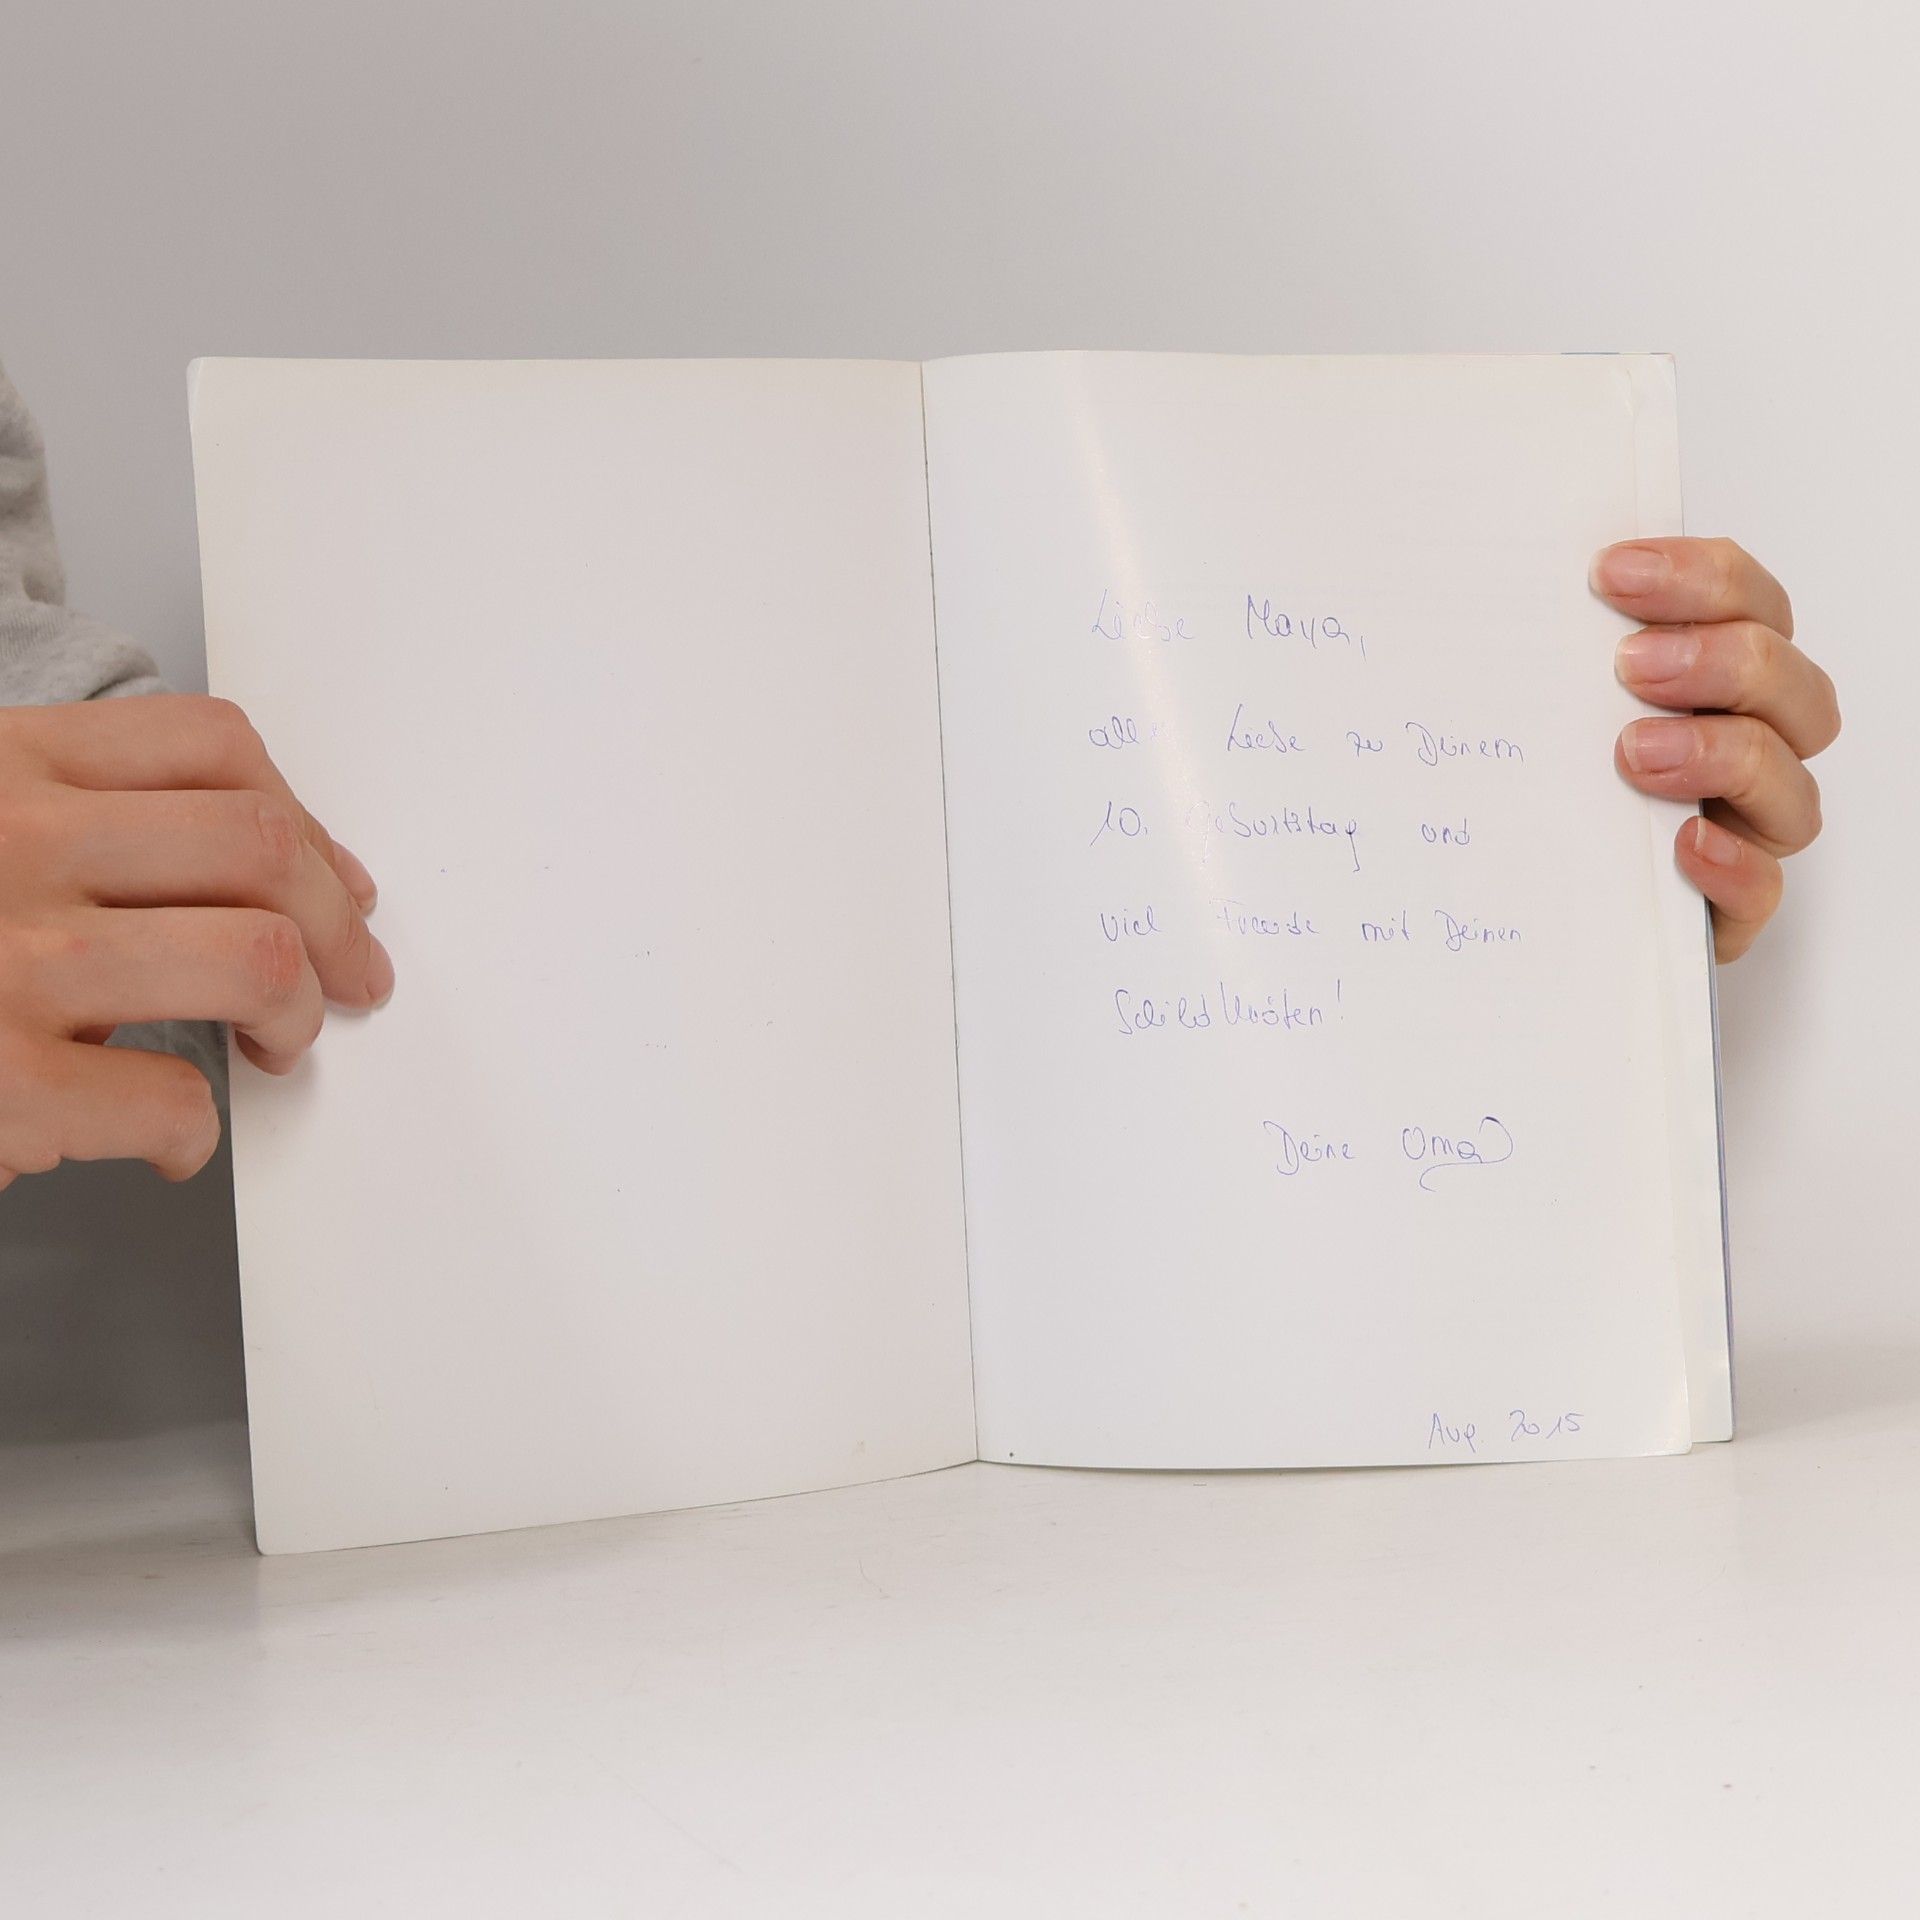 Liebe Maya,
alles Liebe zu Deinem
10. Geburtstag und
viel Freude mit Deinen
Schildkröten!
Deine Oma
Aug. 2015